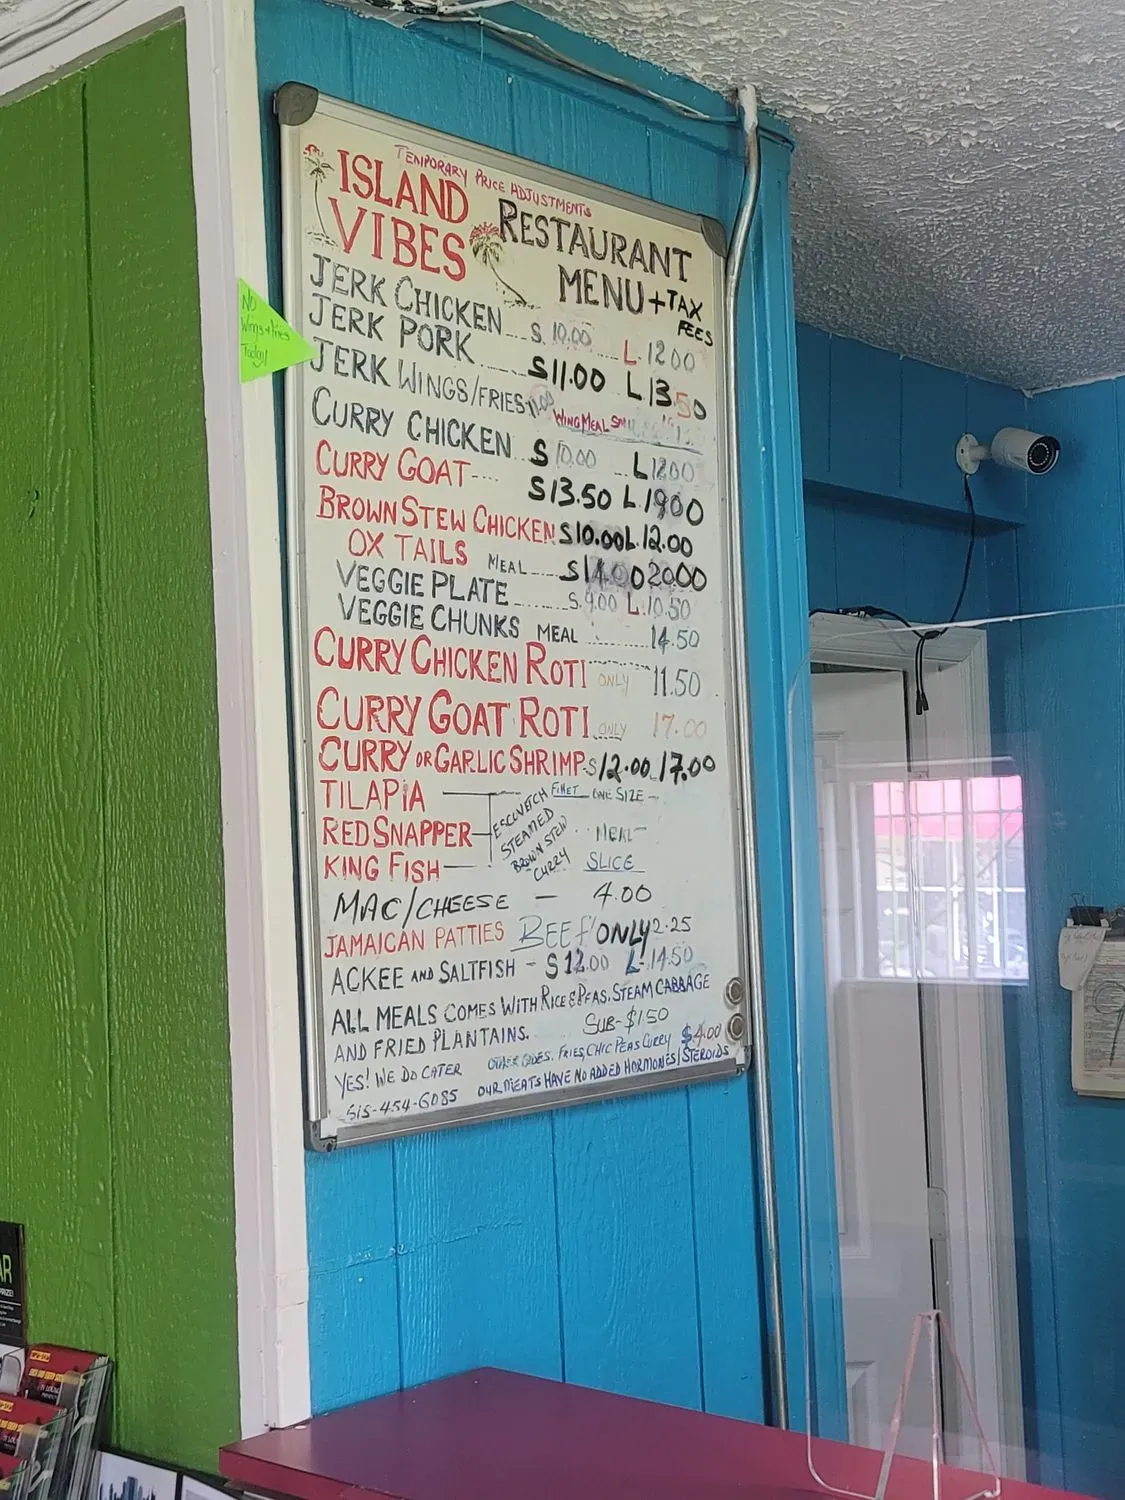 TEMPORARY PRICE ADJUSTMENTS
ISLAND VIBES
RESTAURANT MENU + TAX FEES
JERK CHICKEN S 10.00 L 1200
JERK PORK S11.00 L 13.50
JERK WINGS/FRIES 11.00 WING MEAL
CURRY CHICKEN S 10.00 L 1200
CURRY GOAT S13.50 L 1900
BROWN STEW CHICKEN $10.00 L 12.00
OX TAILS MEAL S14.00 2000
VEGGIE PLATE S.9.00 L.10.50
VEGGIE CHUNKS MEAL 14.50
CURRY CHICKEN ROTI ONLY 11.50
CURRY GOAT ROTI ONLY 17.00
CURRY OR GARLIC SHRIMP S 12.00 L 17.00
TILAPIA FILLET ONE SIZE
RED SNAPPER MEAL
KING FISH SLICE
ESCOVEITCH
STEAMED
BROWN STEW
CURRY
MAC/CHEESE - 4.00
JAMAICAN PATTIES BEEF ONLY 2.25
ACKEE AND SALTFISH - S 12.00 L 14.50
ALL MEALS COMES WITH RICE & PEAS, STEAM CABBAGE
AND FRIED PLANTAINS. SUB-$1.50
YES! WE DO CATER
OTHER SIDES. FRIES, CHIC PEAS CURRY $4.00
515-454-6085
OUR MEATS HAVE NO ADDED HORMONES/STEROIDS
No
Wings + fries
Today!